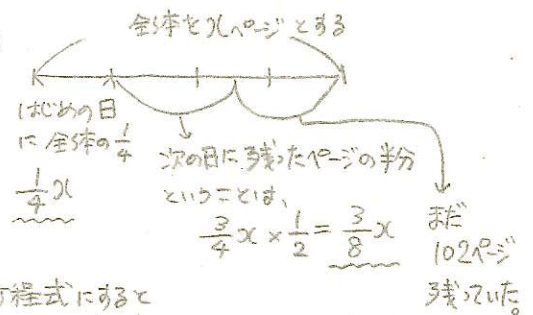 全体をxページとする
はじめの日
に全体の1/4
1/4 x
次の日に残ったページの半分
ということは、
3/4 x × 1/2 = 3/8 x
まだ
102ページ
残っていた。
程式にすると